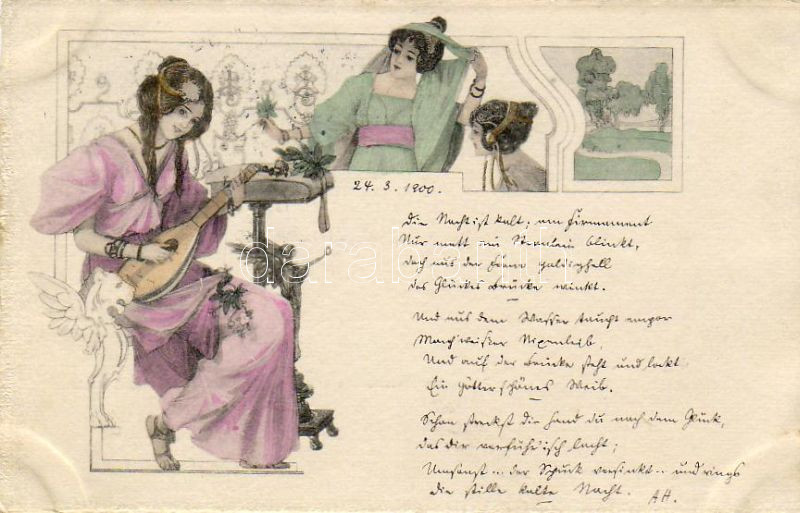 24. 3. 1900.
Die Nacht ist kalt; am Firmament
Nur matt ein Sternlein blinkt,
doch aus der Ferne
des Glückes Brücke winkt.
Und aus dem Wasser taucht empor
Manch' weißer Nixenleib,
Und auf der Brücke steht und lockt
Ein götterschönes Weib.
Schon streckst die Hand du nach dem Glück,
das dir verführ'isch lacht;
Umsonst .. der Spuk versinkt .. und rings
die stille kalte Nacht. AH.